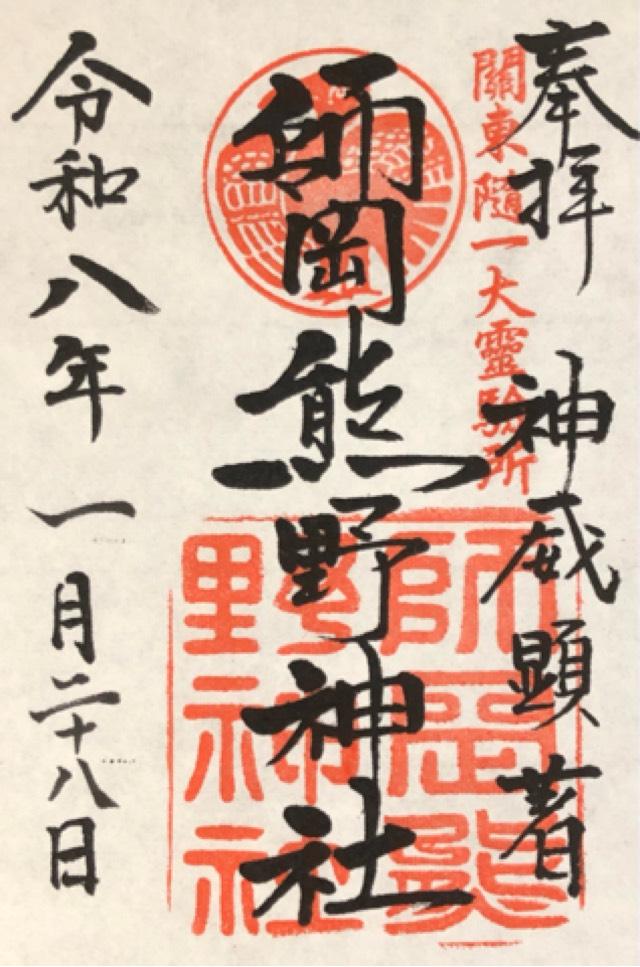 奉拝
關東随一大靈驗所
神威顕著
師岡熊野神社
師岡熊野神社
令和八年一月二十八日